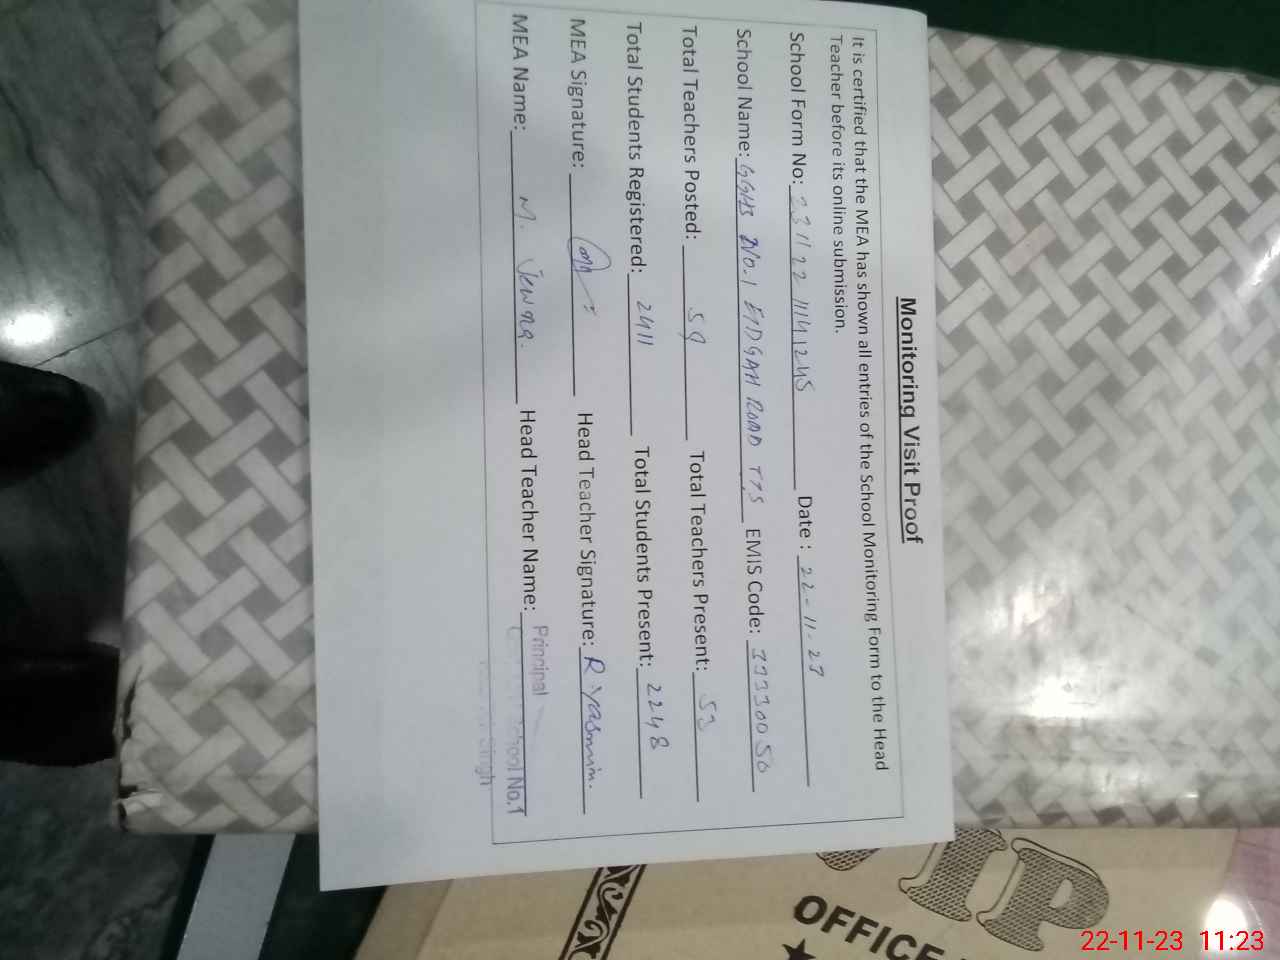 Monitoring Visit Proof
It is certified that the MEA has shown all entries of the School Monitoring Form to the Head
Teacher before its online submission.
School Form No: 231122 1141245 Date : 22-11-23
School Name: GGHS No.1 EIDGAH ROAD TTS EMIS Code: 33330050
Total Teachers Posted: 59 Total Teachers Present: 53
Total Students Registered: 2411 Total Students Present: 2248
MEA Signature: Head Teacher Signature: R Yasmin.
MEA Name: M. Head Teacher Name: Principal
School No.1
Singh
VIP
OFFICE
22-11-23 11:23